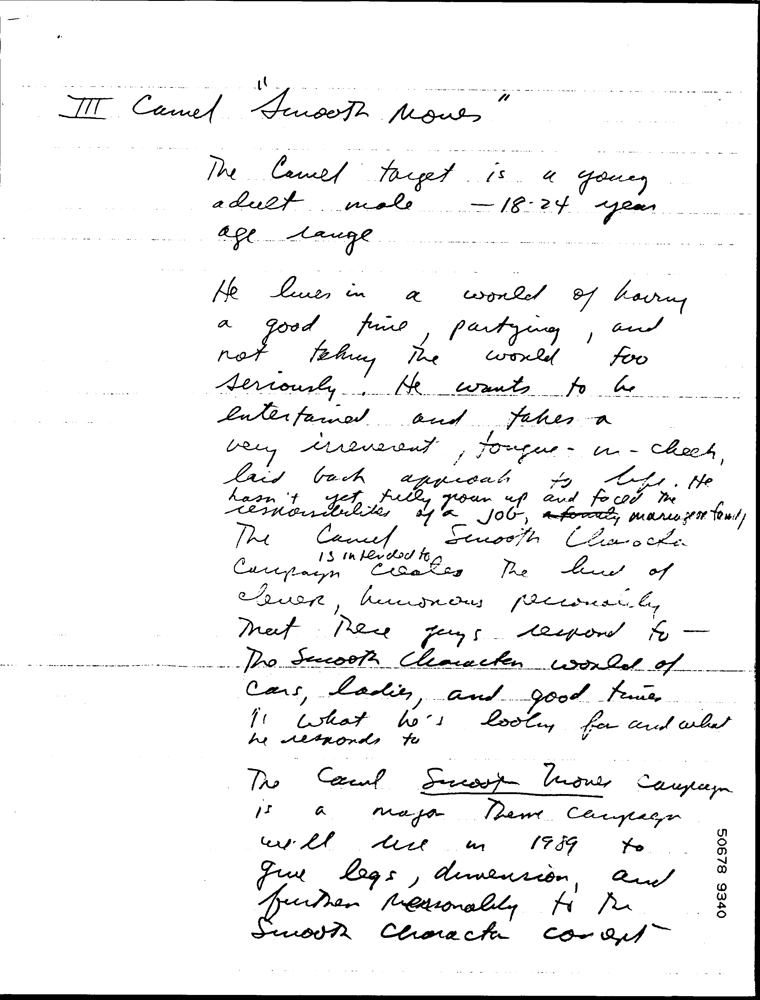 III Camel "Smooth Moves"
The Camel target is a young
adult male - 18-24 year
age range
He lives in a world of having
a good time, partying, and
not taking the world too
seriously. He wants to be
entertained and takes a
very irreverent, tongue-in-cheek,
laid back approach to life. He
hasn't yet fully grown up and faced the
responsibilities of a job, a family marriage or family
The Camel Smooth Character
is intended to
Campaign creates the kind of
clever, humorous personality
that these guys respond to -
The Smooth Character world of
cars, ladies, and good times
is what he's looking for and what
he responds to
The Camel Smooth Moves campaign
is a major theme campaign
we'll use in 1989 to
give legs, dimension, and
further personality to the
Smooth Character concept
50678 9340